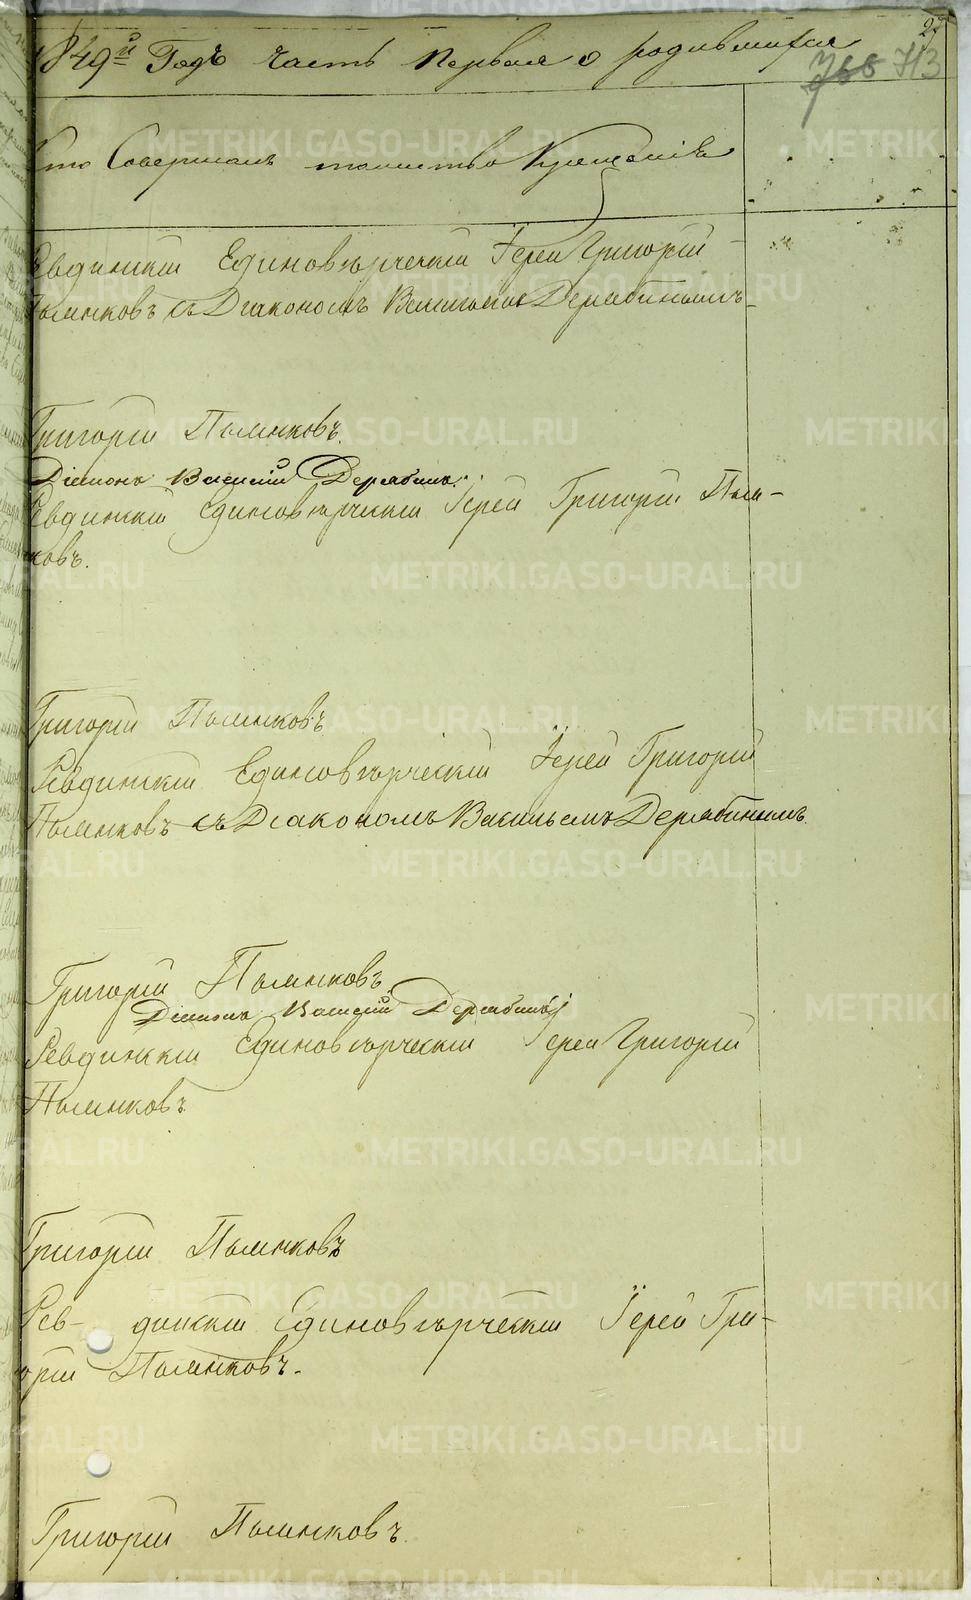 1849й Годъ часть первая о родившихся
27
768 713
Кто Совершалъ таинство Крещенія
Ревдинскій Единовѣрческій Іерей Григорій
Пьянковъ съ Діакономъ Василіемъ Дерябинымъ
Григорій Пьянковъ.
Діаконъ Василій Дерябинъ.
Ревдинскій Единовѣрческій Іерей Григорій Пьян-
ковъ.
Григорій Пьянковъ
Ревдинскій Единовѣрческій Іерей Григорій
Пьянковъ съ Діакономъ Васильемъ Дерябинымъ.
Григорій Пьянковъ
Діаконъ Василій Дерябинъ
Ревдинскій Единовѣрческій Іерей Григорій
Пьянковъ
Григорій Пьянковъ
Рев- динскій Единовѣрческій Іерей Гри-
горій Пьянковъ.
Григорій Пьянковъ.
METRIKI.GASO-URAL.RU